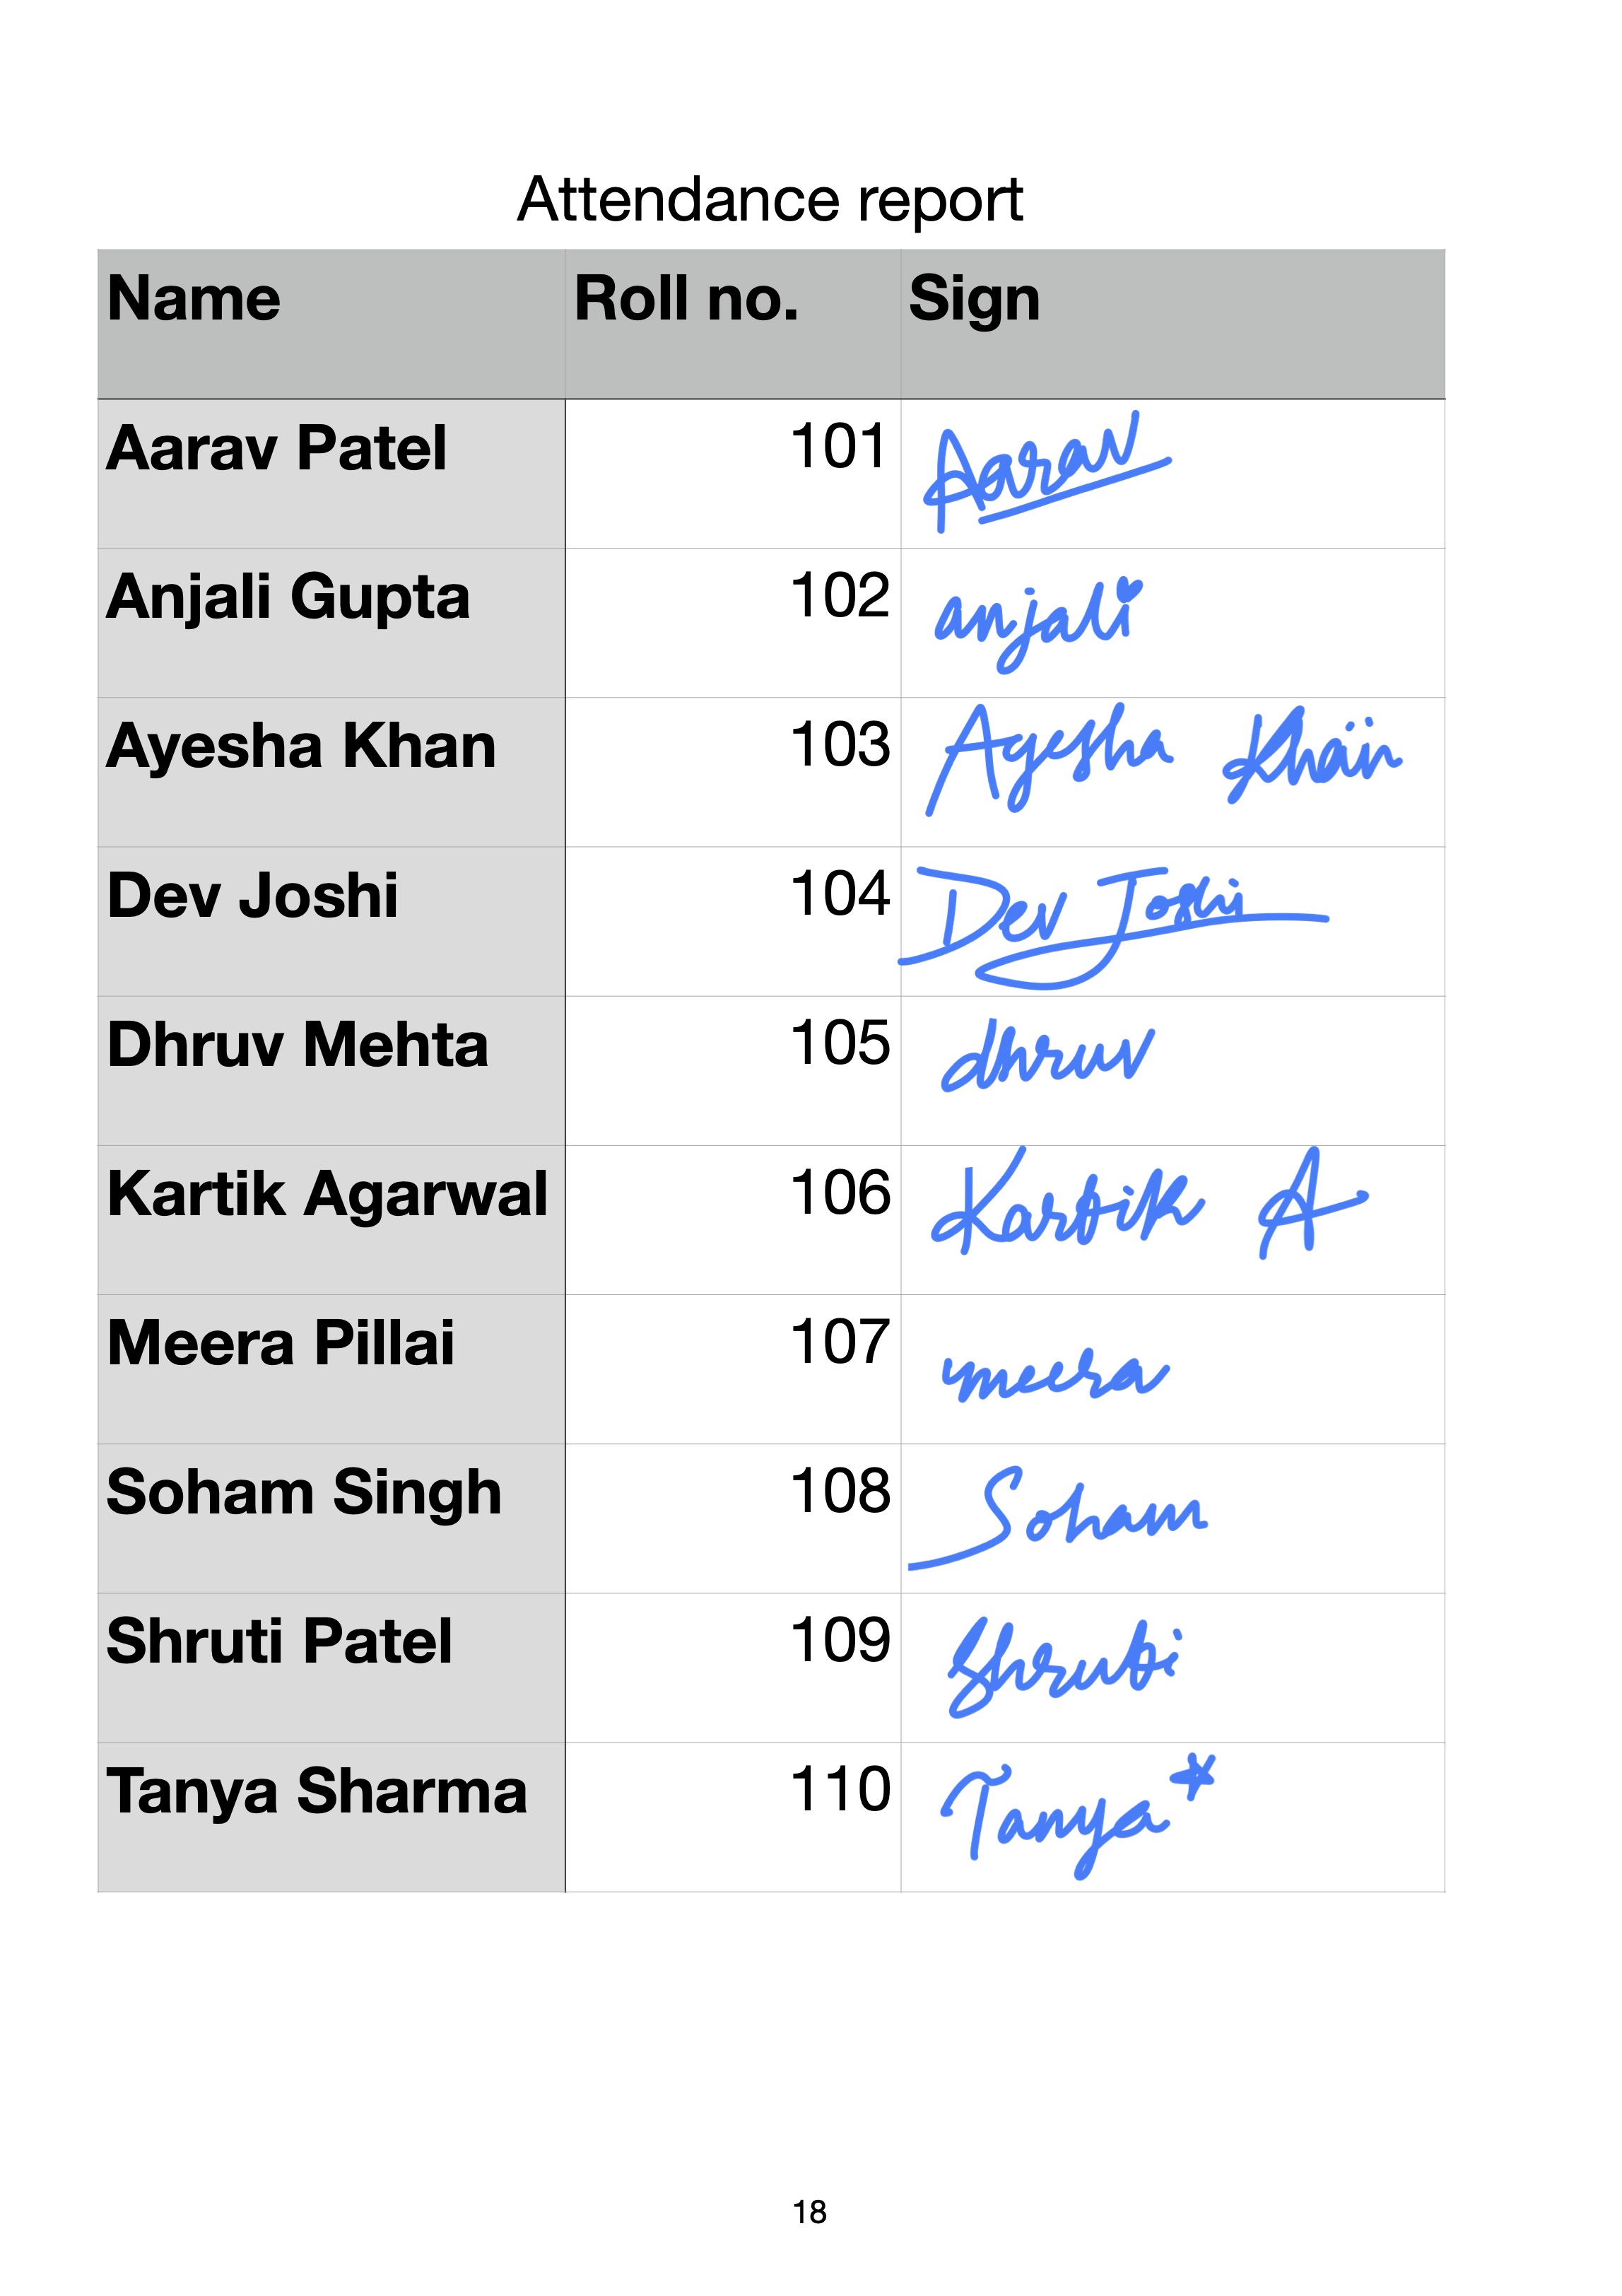 Attendance report
Name Roll no. Sign
Aarav Patel 101 Aarav
Anjali Gupta 102 anjali
Ayesha Khan 103 Ayesha Khan
Dev Joshi 104 Dev Joshi
Dhruv Mehta 105 dhruv
Kartik Agarwal 106 Kartik A
Meera Pillai 107 meera
Soham Singh 108 Soham
Shruti Patel 109 Shruti
Tanya Sharma 110 Tanya*
18